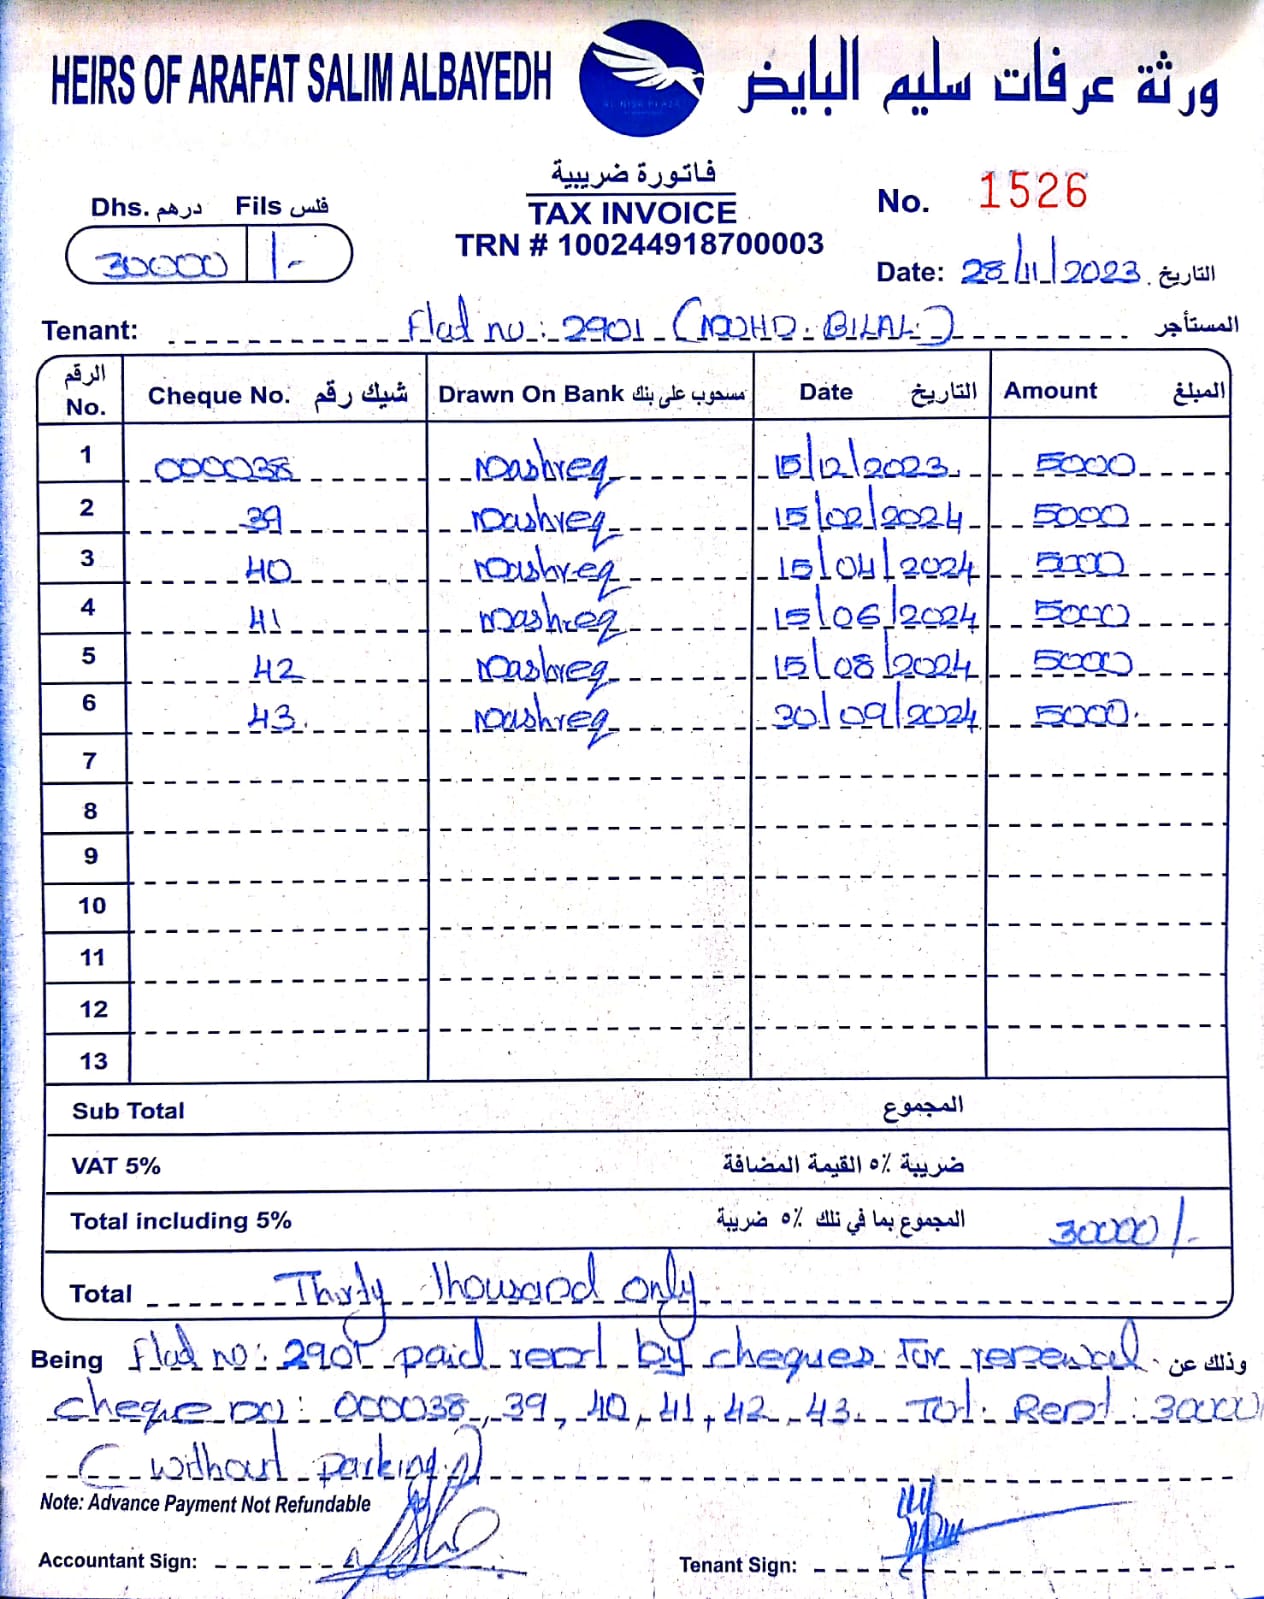 HEIRS OF ARAFAT SALIM ALBAYEDH
ورثة عرفات سليم البايض
AL NISR PLAZA
فاتورة ضريبية
TAX INVOICE
TRN # 100244918700003
Dhs. درهم Fils فلس
30000 /-
No. 1526
Date: 28/11/2023 التاريخ
Tenant: Flat no: 2901 (MOHD. BILAL) المستأجر
الرقم No. Cheque No. شيك رقم Drawn On Bank مسحوب على بنك Date التاريخ Amount المبلغ
1 000038 Mashreq 15/12/2023 5000
2 39 Mashreq 15/02/2024 5000
3 40 Mashreq 15/04/2024 5000
4 41 Mashreq 15/06/2024 5000
5 42 Mashreq 15/08/2024 5000
6 43. Mashreq 30/09/2024 5000
7
8
9
10
11
12
13
Sub Total المجموع
VAT 5% ضريبة ٥٪ القيمة المضافة
Total including 5% المجموع بما في ذلك ٥٪ ضريبة 30000/-
Total Thirty thousand only
Being flat no: 2901 paid rent by cheques for renewal وذلك عن
cheque no: 000038, 39, 40, 41, 42, 43. Tot. Rent: 30000
(without parking)
Note: Advance Payment Not Refundable
Accountant Sign:
Tenant Sign: